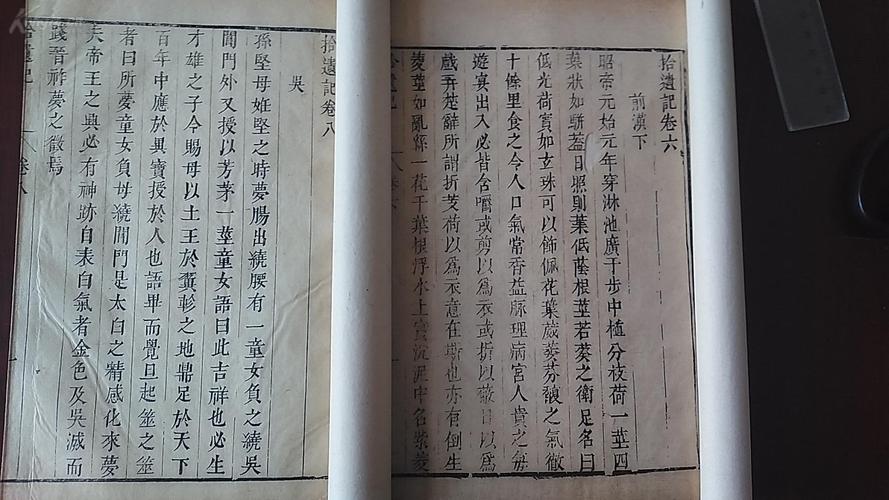 拾遺記卷六
前漢下
昭帝元始元年穿淋池廣千步中植分枝荷一莖四
葉狀如駢葢日照則葉低蔭根莖若葵之衛足名曰
低光荷實如玄珠可以飾佩花葉葳萎芬馥之氣徹
十餘里食之令人口氣常香益脉理病宮人貴之每
遊宴出入必皆含嚼或剪以爲衣或折以蔽日以爲
戲弄楚辭所謂折芰荷以爲衣意在斯也亦有倒生
菱莖如亂絲一花千葉根浮水上實沉泥中名紫菱
拾遺記卷八
吳
孫堅母姙堅之時夢腸出繞腰有一童女負之繞吳
閶門外又授以芳茅一莖童女語曰此吉祥也必生
才雄之子今賜母以土王於翼軫之地鼎足於天下
百年中應於異寶授於人也語畢而覺旦起筮之筮
者曰所夢童女負母繞閶門是太白之精感化來夢
夫帝王之興必有神跡自表白氣者金色及吳滅而
踐晉祚夢之徵焉
拾遺記 卷八 一